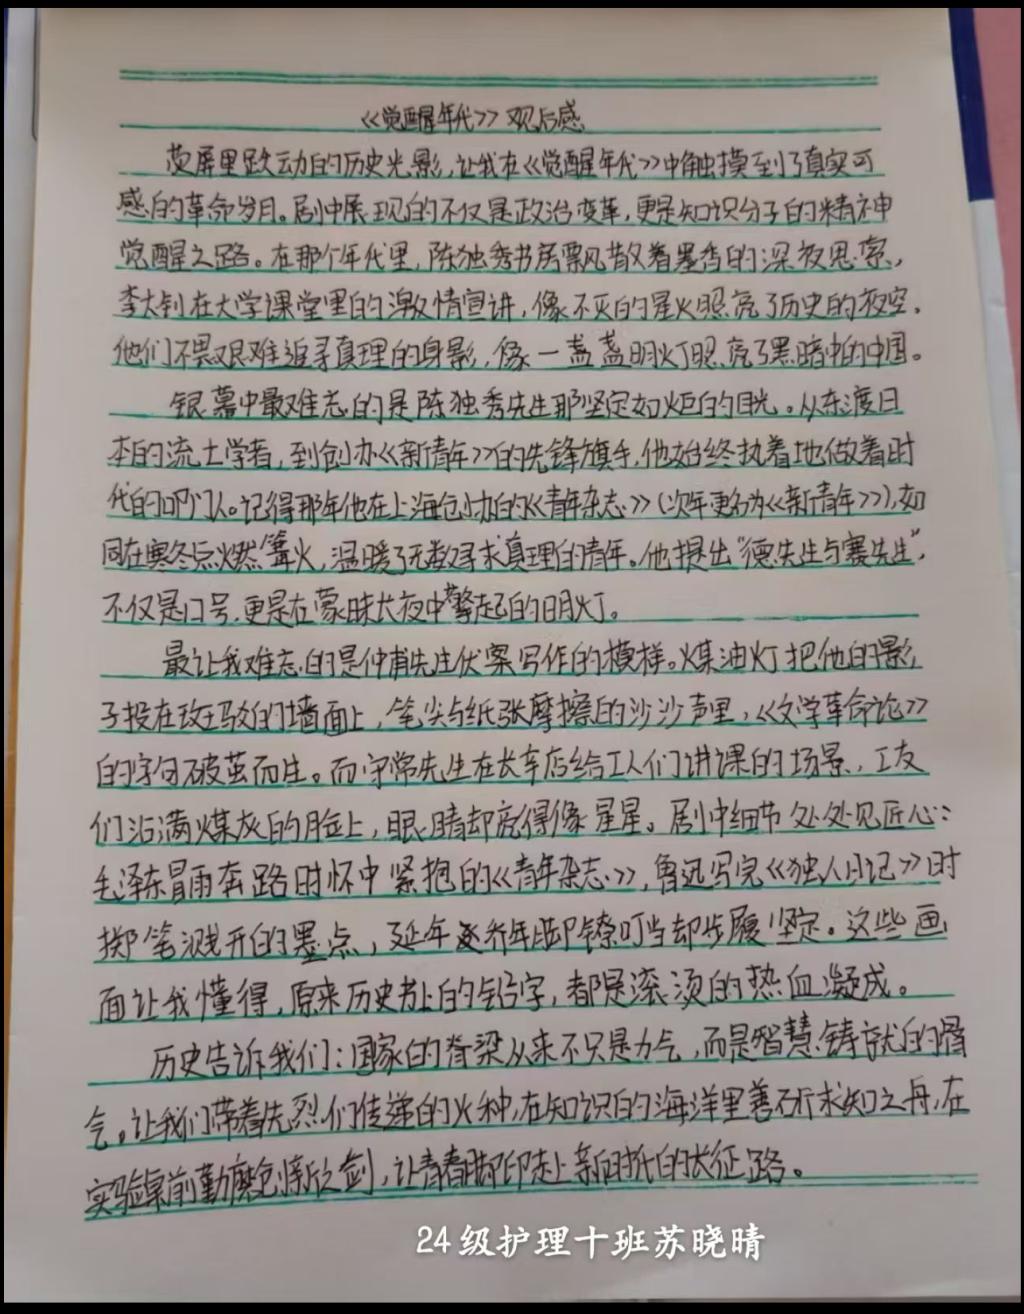 《觉醒年代》观后感
荧屏里跃动的历史光影,让我在《觉醒年代》中触摸到了真实可
感的革命岁月。剧中展现的不仅是政治变革,更是知识分子的精神
觉醒之路。在那个年代里,陈独秀书房飘散着墨香的深夜思索,
李大钊在大学课堂里的激情宣讲,像不灭的星火照亮了历史的夜空。
他们不畏艰难追寻真理的身影,像一盏盏明灯照亮了黑暗中的中国。
银幕中最难忘的是陈独秀先生那坚定如炬的目光。从东渡日
本的流亡学者,到创办《新青年》的先锋旗手,他始终执着地做着时
代的叩门人。记得那年他在上海创办的《青年杂志》(次年更名为《新青年》),如
同在寒冬点燃篝火,温暖了无数寻求真理的青年。他提出“德先生与赛先生”,
不仅是口号,更是在蒙昧长夜中擎起的明灯。
最让我难忘的是仲甫先生伏案写作的模样。煤油灯把他的影
子投在斑驳的墙面上,笔尖与纸张摩擦的沙沙声里,《文学革命论》
的字句破茧而生。而守常先生在长辛店给工人们讲课的场景,工友
们沾满煤灰的脸上,眼睛却亮得像星星。剧中细节处处见匠心:
毛泽东冒雨奔路时怀中紧抱的《青年杂志》,鲁迅写完《狂人日记》时
掷笔溅开的墨点,延年乔年脚镣叮当却步履坚定。这些画
面让我懂得,原来历史书上的铅字,都是滚烫的热血凝成。
历史告诉我们:国家的脊梁从来不只是力气,而是智慧铸就的骨
气。让我们带着先烈们传递的火种,在知识的海洋里善研求知之舟,在
实验桌前勤磨创新之剑,让青春脚印走上新时代的长征路。
24级护理十班苏晓晴